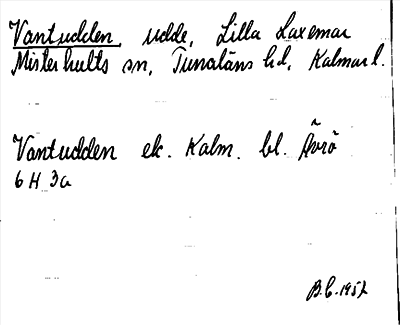 Vantudden, udde, Lilla Laxemar
Misterhults sn, Tunaläns hd, Kalmar l.
Vantudden ek. Kalm. bl. Ävrö
6 H 3a
B.C. 1957